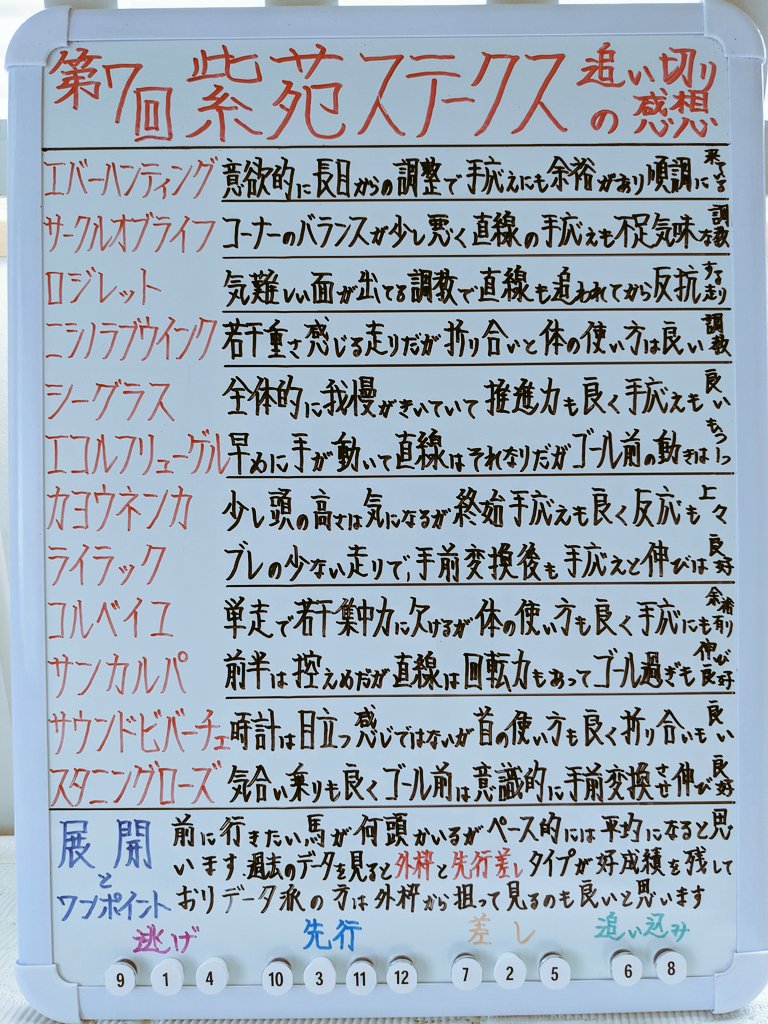 第7回 紫苑ステークス 追い切りの感想
エバーハンティング 意欲的に長目からの調整で手応えにも余裕があり順調に来ている
サークルオブライフ コーナーのバランスが少し悪く直線の手応えも不足気味な調教
ロジレット 気難しい面が出てる調教で直線も追われてから反抗する走り
ニシノラブウインク 若干重さ感じる走りだが折り合いと体の使い方は良い調教
シーグラス 全体的に我慢がきいていて推進力も良く手応えも良い
エコルフリューゲル 早めに手が動いて直線はそれなりだがゴール前の動きはもう一つ
カヨウネンカ 少し頭の高さは気になるが終始手応えも良く反応も上々
ライラック ブレの少ない走りで、手前変換後も手応えと伸びは良好
コルベイユ 単走で若干集中力に欠けるが体の使い方も良く手応にも余裕有り
サンカルパ 前半は控えめだが直線は回転力もあってゴール過ぎも伸び良好
サウンドビバーチェ 時計は目立つ感じではないが首の使い方も良く折り合いも良い
スタニングローズ 気合い乗りも良くゴール前は意識的に手前変換させ伸び良好
展開とワンポイント
前に行きたい馬が何頭かいるがペース的には平均になると思
います.過去のデータを見ると外枠と先行差しタイプが好成績を残して
おりデータ派の方は外枠から狙って見るのも良いと思います
逃げ 先行 差し 追い込み
9 1 4 10 3 11 12 7 2 5 6 8